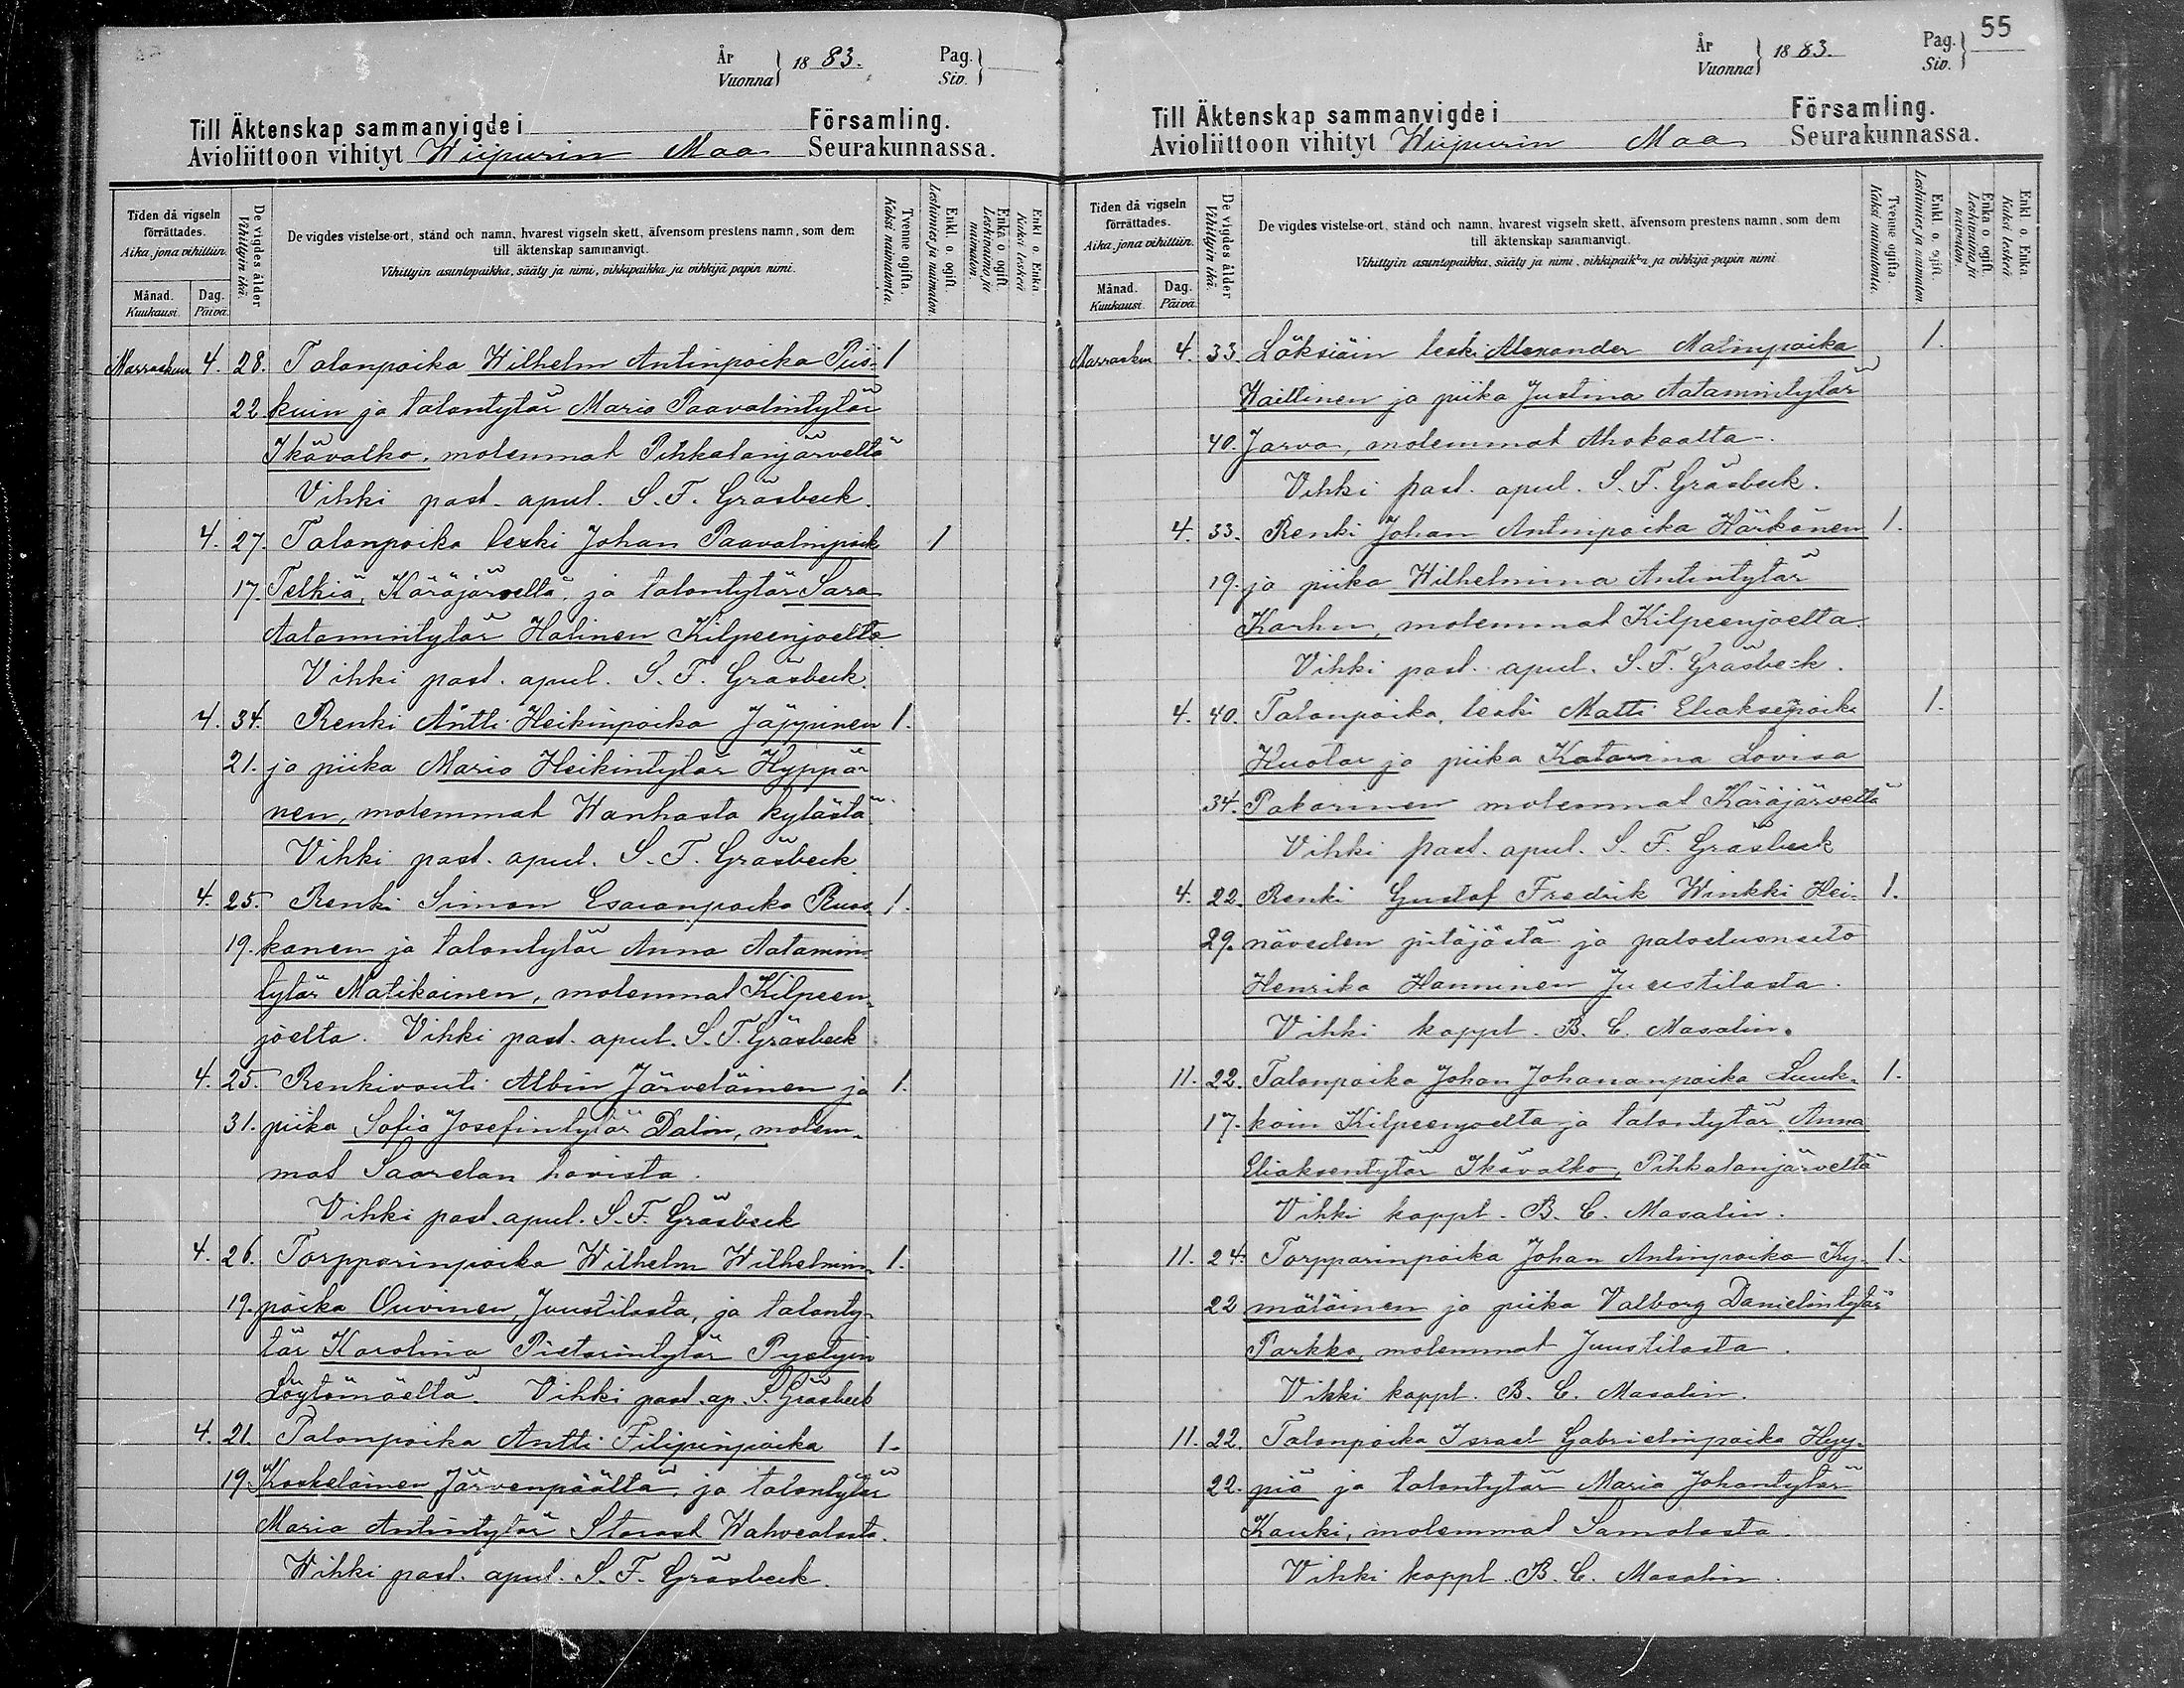 År
Vuonna } 1883. Pag.
Siv. }
Till Äktenskap sammanvigde i Församling.
Avioliittoon vihityt Wiipurin Maa Seurakunnassa.
Tiden då vigseln förrättades.
Aika, jona vihittiin.
Månad. Kuukausi.
Dag. Päivä.
De vigdes ålder
Vihittyin ikä.
De vigdes vistelse-ort, stånd och namn, hvarest vigseln skett, äfvensom prestens namn, som dem
till äktenskap sammanvigt.
Vihittyin asuntopaikka, sääty ja nimi, vihkipaikka ja vihkijä papin nimi.
Tvenne ogifta.
Kaksi naimatonta.
Enkl. o. ogift.
Leskimies ja naimaton.
Enka o. ogift.
Leskivaimo ja naimaton.
Enkl o. Enka
Kaksi leskeä
Marraskuu 4. 28. Talonpoika Wilhelm Antinpoika Piis- 1
22 kuin ja talontytär Maria Paavalintytär
Ikävalko, molemmat Pihkalanjärveltä
Vihki past. apul. S. F. Gräsbeck.
4. 27. Talonpoika leski Johan Paavalinpoik 1
17. Telkiä, Käräjärveltä, ja talontytär Sara
Aatamintytär Halinen Kilpeenjoelta
Vihki past. apul. S. F. Gräsbeck.
4. 34. Renki Antti Heikinpoika Jäppinen 1.
21. ja piika Maria Heikintytär Hyppä-
nen, molemmat Wanhasta kylästä.
Vihki past. apul. S. F. Gräsbeck.
4. 25. Renki Simon Esaianpoika Ruos- 1.
19. kanen ja talontytär Anna Aatamin-
tytär Matikainen, molemmat Kilpeen-
joelta. Vihki past. apul. S. F. Gräsbeck
4. 25. Renkivouti Albin Järveläinen ja 1.
31. piika Sofia Josefintytär Dalin, molem-
mat Saarelan hovista.
Vihki past. apul. S. F. Gräsbeck
4. 26. Torpparinpoika Wilhelm Wilhelmin- 1.
19. poika Ouvinen, Juustilasta, ja talonty-
tär Karolina Pietarintytär Pystyin
Löytömäeltä. Vihki past. ap. S. Gräsbeck
4. 21. Talonpoika Antti Filipinpoika 1.
19. Koskelainen Järvenpäältä, ja talontytär
Maria Antintytär Starast Wahvealasta.
Wihki past. apul. S. F. Gräsbeck.
55
År
Vuonna } 1883. Pag.
Siv. }
Till Äktenskap sammanvigde i Församling.
Avioliittoon vihityt Wiipurin Maa Seurakunnassa.
Tiden då vigseln förrättades.
Aika, jona vihittiin.
Månad. Kuukausi.
Dag. Päivä.
De vigdes ålder
Vihittyin ikä.
De vigdes vistelse-ort, stånd och namn, hvarest vigseln skett, äfvensom prestens namn, som dem
till äktenskap sammanvigt.
Vihittyin asuntopaikka, sääty ja nimi, vihkipaikka ja vihkijä papin nimi
Tvenne ogifta.
Kaksi naimatonta.
Enkl. o. ogift.
Leskimies ja naimaton.
Enka o. ogift.
Leskivaimo ja naimaton.
Enkl o. Enka.
Kaksi leskeä.
Marraskuu 4. 33. Löksiäin leski Alexander Matinpoika 1.
Waittinen ja piika Justina Aatamintytär
40. Jarva, molemmat Ahokaalta.
Vihki past. apul. S. F. Gräsbeck.
4. 33. Renki Johan Antinpoika Härkönen 1.
19. ja piika Wilhelmina Antintytär
Karhu, molemmat Kilpeenjoelta.
Vihki past. apul. S. F. Gräsbeck.
4. 40. Talonpoika, leski Matti Eliaksepoika 1.
Huotar ja piika Katarina Lovisa
34. Pakarinen molemmat Käräjärveltä
Vihki past. apul. S. F. Gräsbeck
4. 22. Renki Gustaf Fredrik Winkki Hei- 1.
29. näveden pitäjästä ja palvelusneito
Henrika Hanninen Juustilasta.
Vihki kappl. B. C. Masalin.
11. 22. Talonpoika Johan Johananpoika Luuk- 1.
17. kain Kilpeenjoelta ja talontytär Anna
Eliaksentytär Ikävalko, Pihkalanjärveltä
Vihki kappl. B. C. Masalin.
11. 24. Torpparinpoika Johan Antinpoika Ky- 1.
22 mäläinen ja piika Valborg Danielintytär
Parkko, molemmat Juustilasta.
Vihki kappl. B. C. Masalin.
11. 22. Talonpoika Israel Gabrielinpoika Hyy-
22. piä ja talontytär Maria Johantytär
Kauki, molemmat Samolasta.
Vihki kappl. B. C. Masalin.